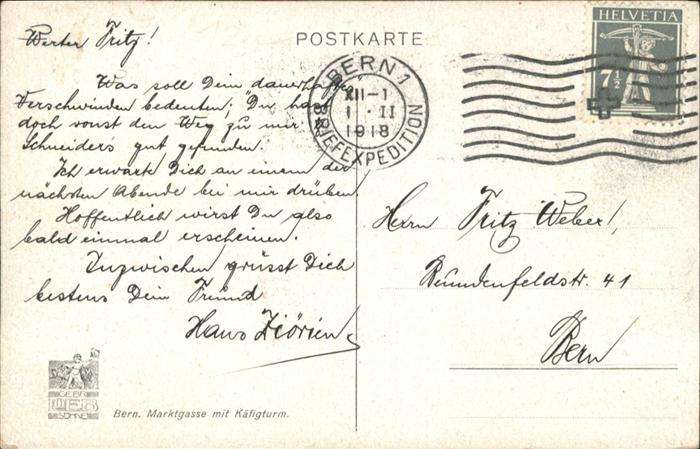 Werter Fritz!
Was soll Dein dauerhaftes
Verschwinden bedeuten; Du hast
doch sonst den Weg zu mir
Schneiders gut gefunden.
Ich erwarte Dich an einem der
nächsten Abende bei mir drüben.
Hoffentlich wirst Du also
bald einmal erscheinen.
Inzwischen grüsst Dich
bestens Dein Freund
Hans
GEBR
SÖHNE
Bern. Marktgasse mit Käfigturm.
POSTKARTE
BERN 1
XII-1
1 · II
1918
BRIEFEXPEDITION
HELVETIA
7½
Herrn Fritz Weber,
41
Bern